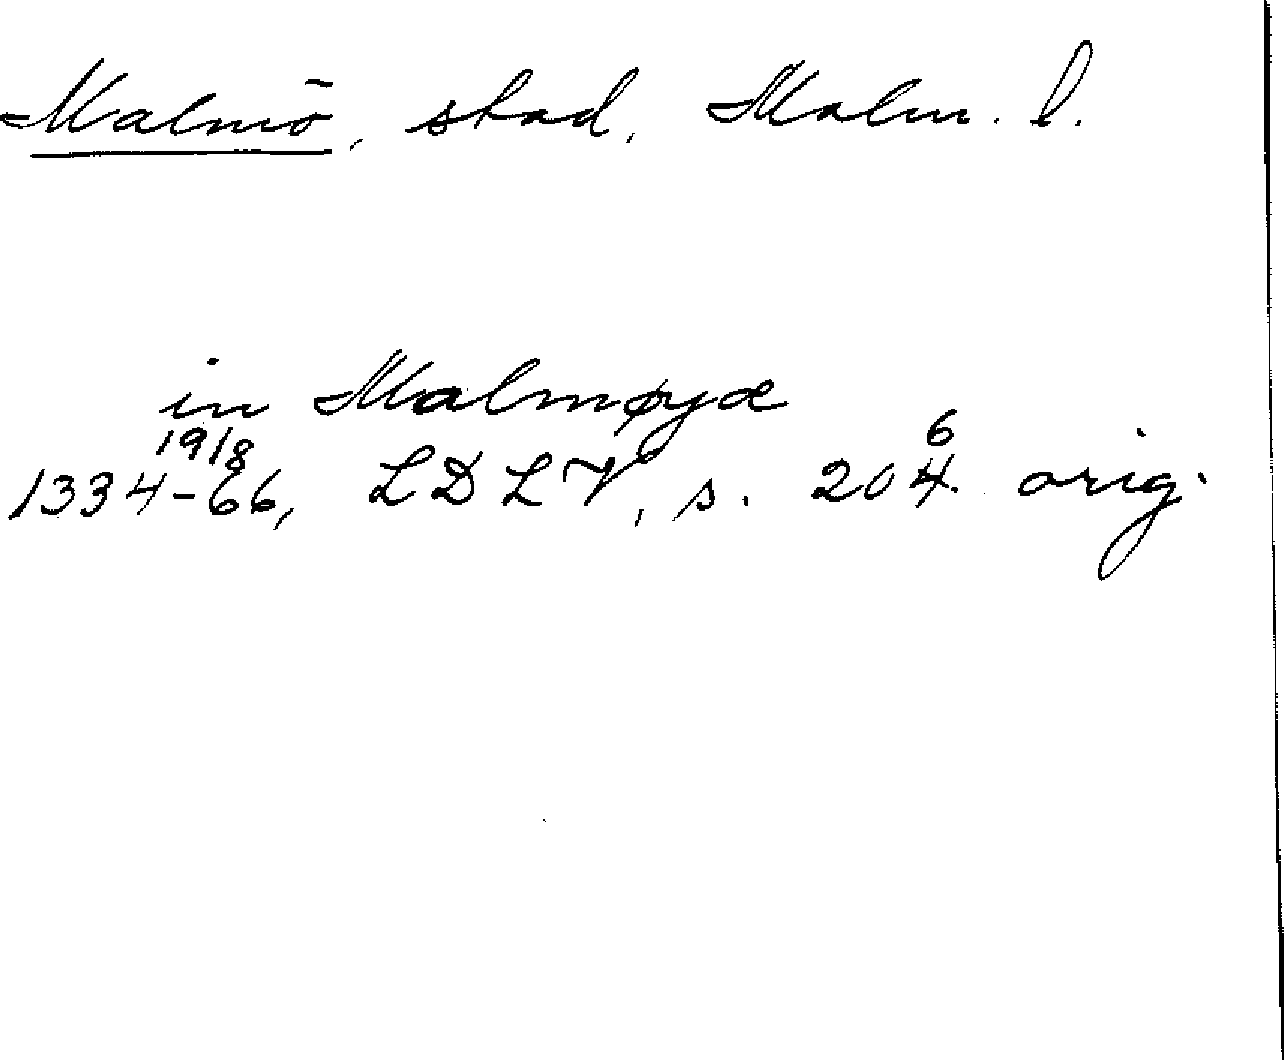 Malmö, stad, Malm. l.
in Malmøyæ
19/8
1334-66, LDLV, s. 204. orig.
6